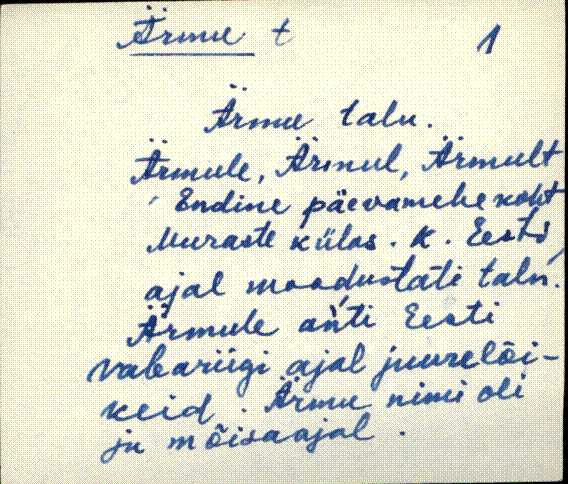 Ärmu t 1
Ärmu talu.
Ärmule, Ärmul, Ärmult
Endine päevamehe koht
Muraste külas. K. Eesti
ajal moodustati talu.
Ärmule anti Eesti
vabariigi ajal juurelõi-
keid. Ärmu nimi oli
ju mõisaajal.